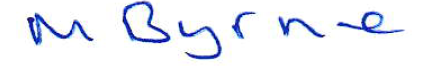 M Byrne